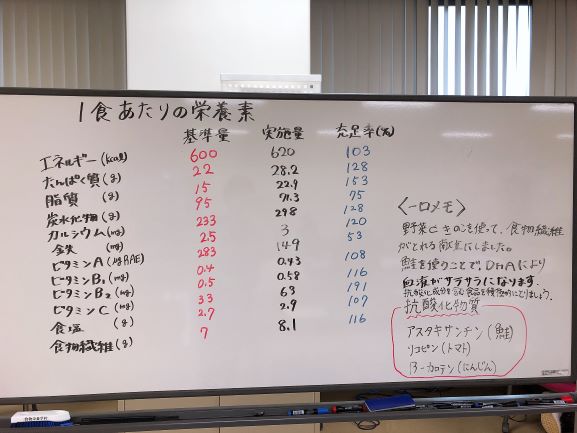 1食あたりの栄養素
基準量 実施量 充足率(%)
エネルギー(kcal) 600 620 103
たんぱく質(g) 22 28.2 128
脂質(g) 15 22.9 153
炭水化物(g) 95 71.3 75
カルシウム(mg) 233 298 128
鉄(mg) 2.5 3 120
ビタミンA(μgRAE) 283 149 53
ビタミンB₁(mg) 0.4 0.43 108
ビタミンB₂(mg) 0.5 0.58 116
ビタミンC(mg) 33 63 191
食塩(g) 2.7 2.9 107
食物繊維(g) 7 8.1 116
〈一口メモ〉
野菜ときのこを使って、食物繊維
がとれる献立にしました。
鮭を使うことで、DHAにより
血液がサラサラになります。
抗酸化成分を含む食品を積極的にとりましょう。
抗酸化物質
アスタキサンチン(鮭)
リコピン(トマト)
β-カロテン(にんじん)